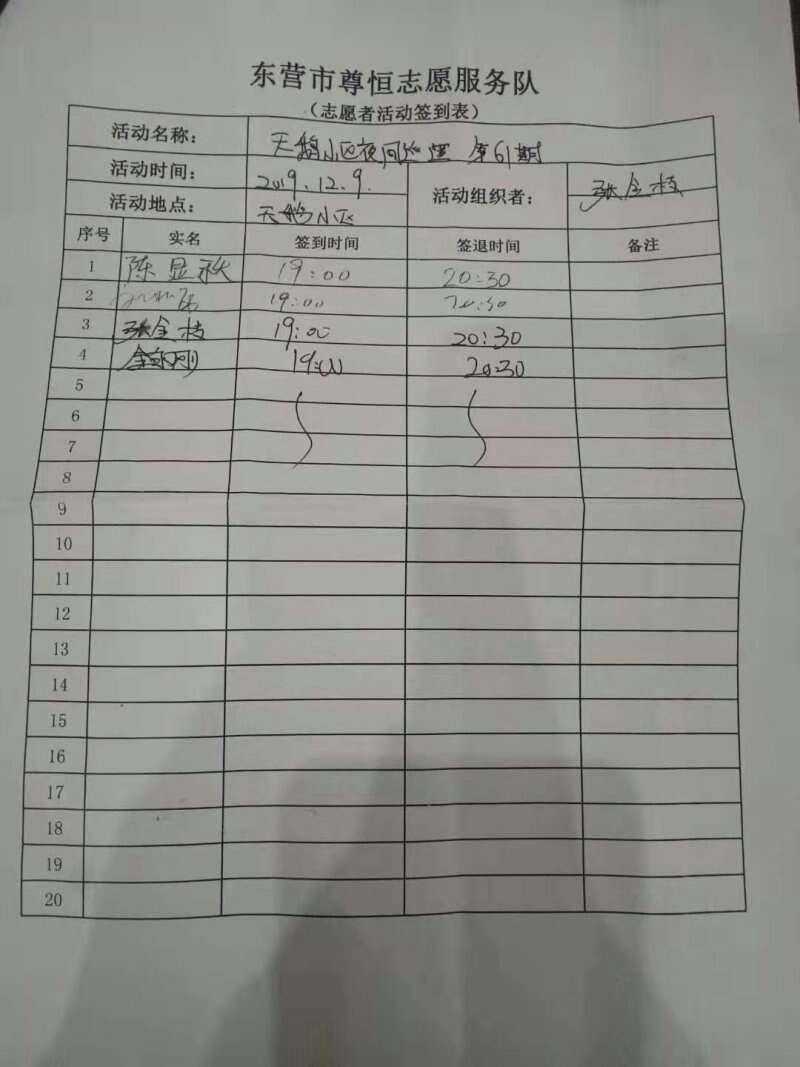 东营市尊恒志愿服务队
（志愿者活动签到表）
活动名称： 天鹅小区夜间巡逻 第61期
活动时间： 2019.12.9. 活动组织者： 张全枝
活动地点： 天鹅小区
序号 实名 签到时间 签退时间 备注
1 陈显秩 19:00 20:30
2 19:00 20:30
3 张全枝 19:00 20:30
4 19:00 20:30
5
6
7
8
9
10
11
12
13
14
15
16
17
18
19
20